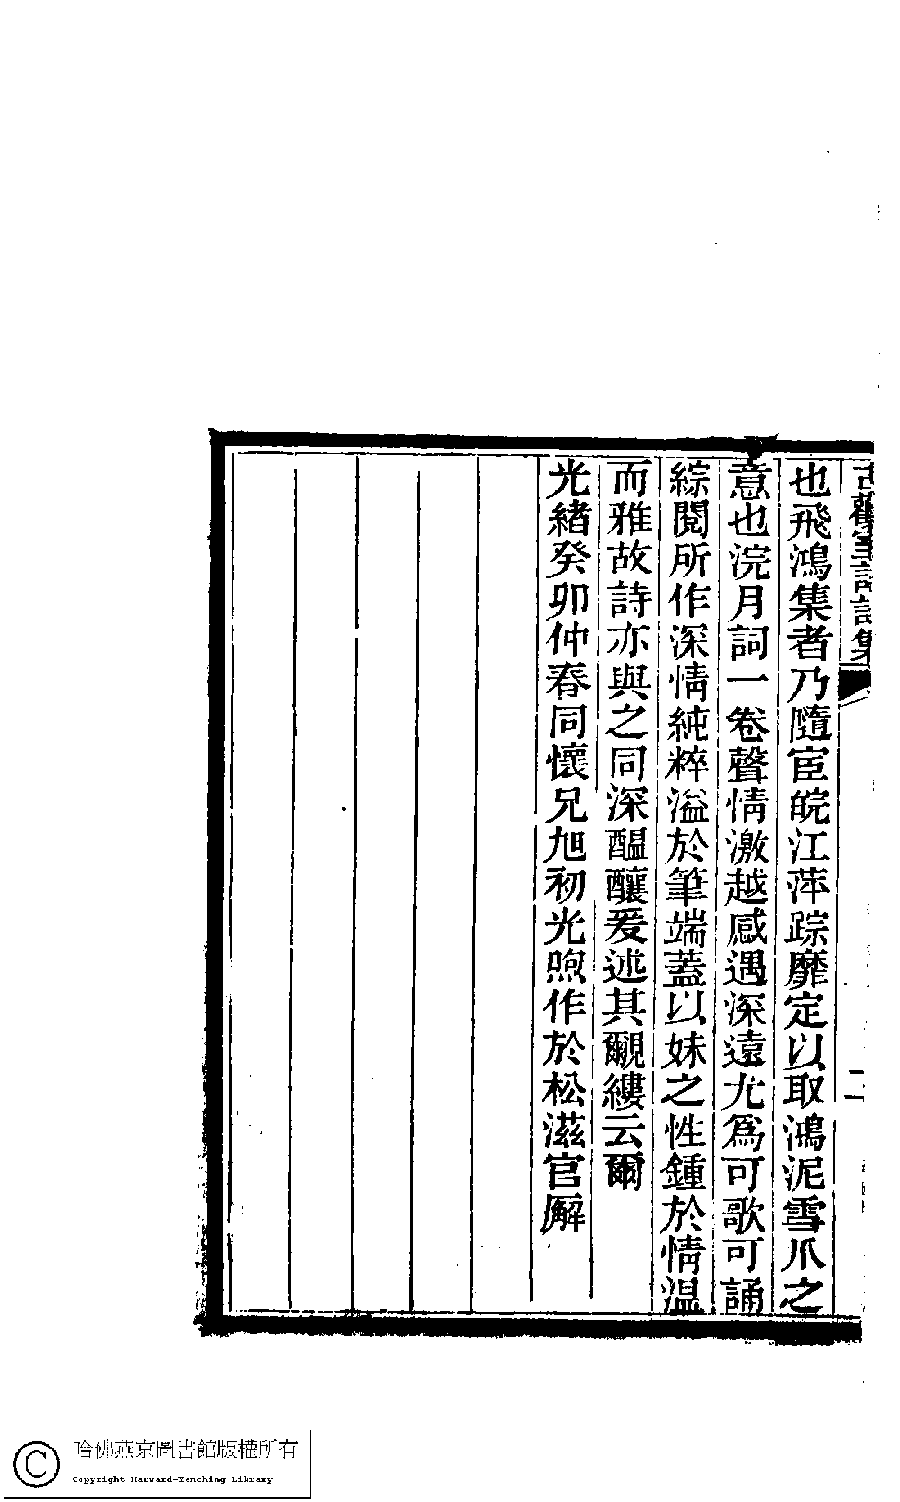 古歡室詩詞集
也飛鴻集者乃隨宦皖江萍踪靡定以取鴻泥雪爪之
意也浣月詞一卷聲情激越感遇深遠尤爲可歌可誦
綜閱所作深情純粹溢於筆端蓋以妹之性鍾於情溫
而雅故詩亦與之同深醞釀爰述其覼縷云爾
光緒癸卯仲春同懷兄旭初光煦作於松滋官廨
二
哈佛燕京圖書館版權所有
Copyright Harvard-Yenching Library